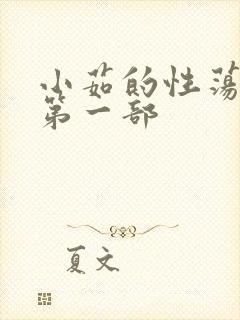 小茹的性荡
第一部
夏文